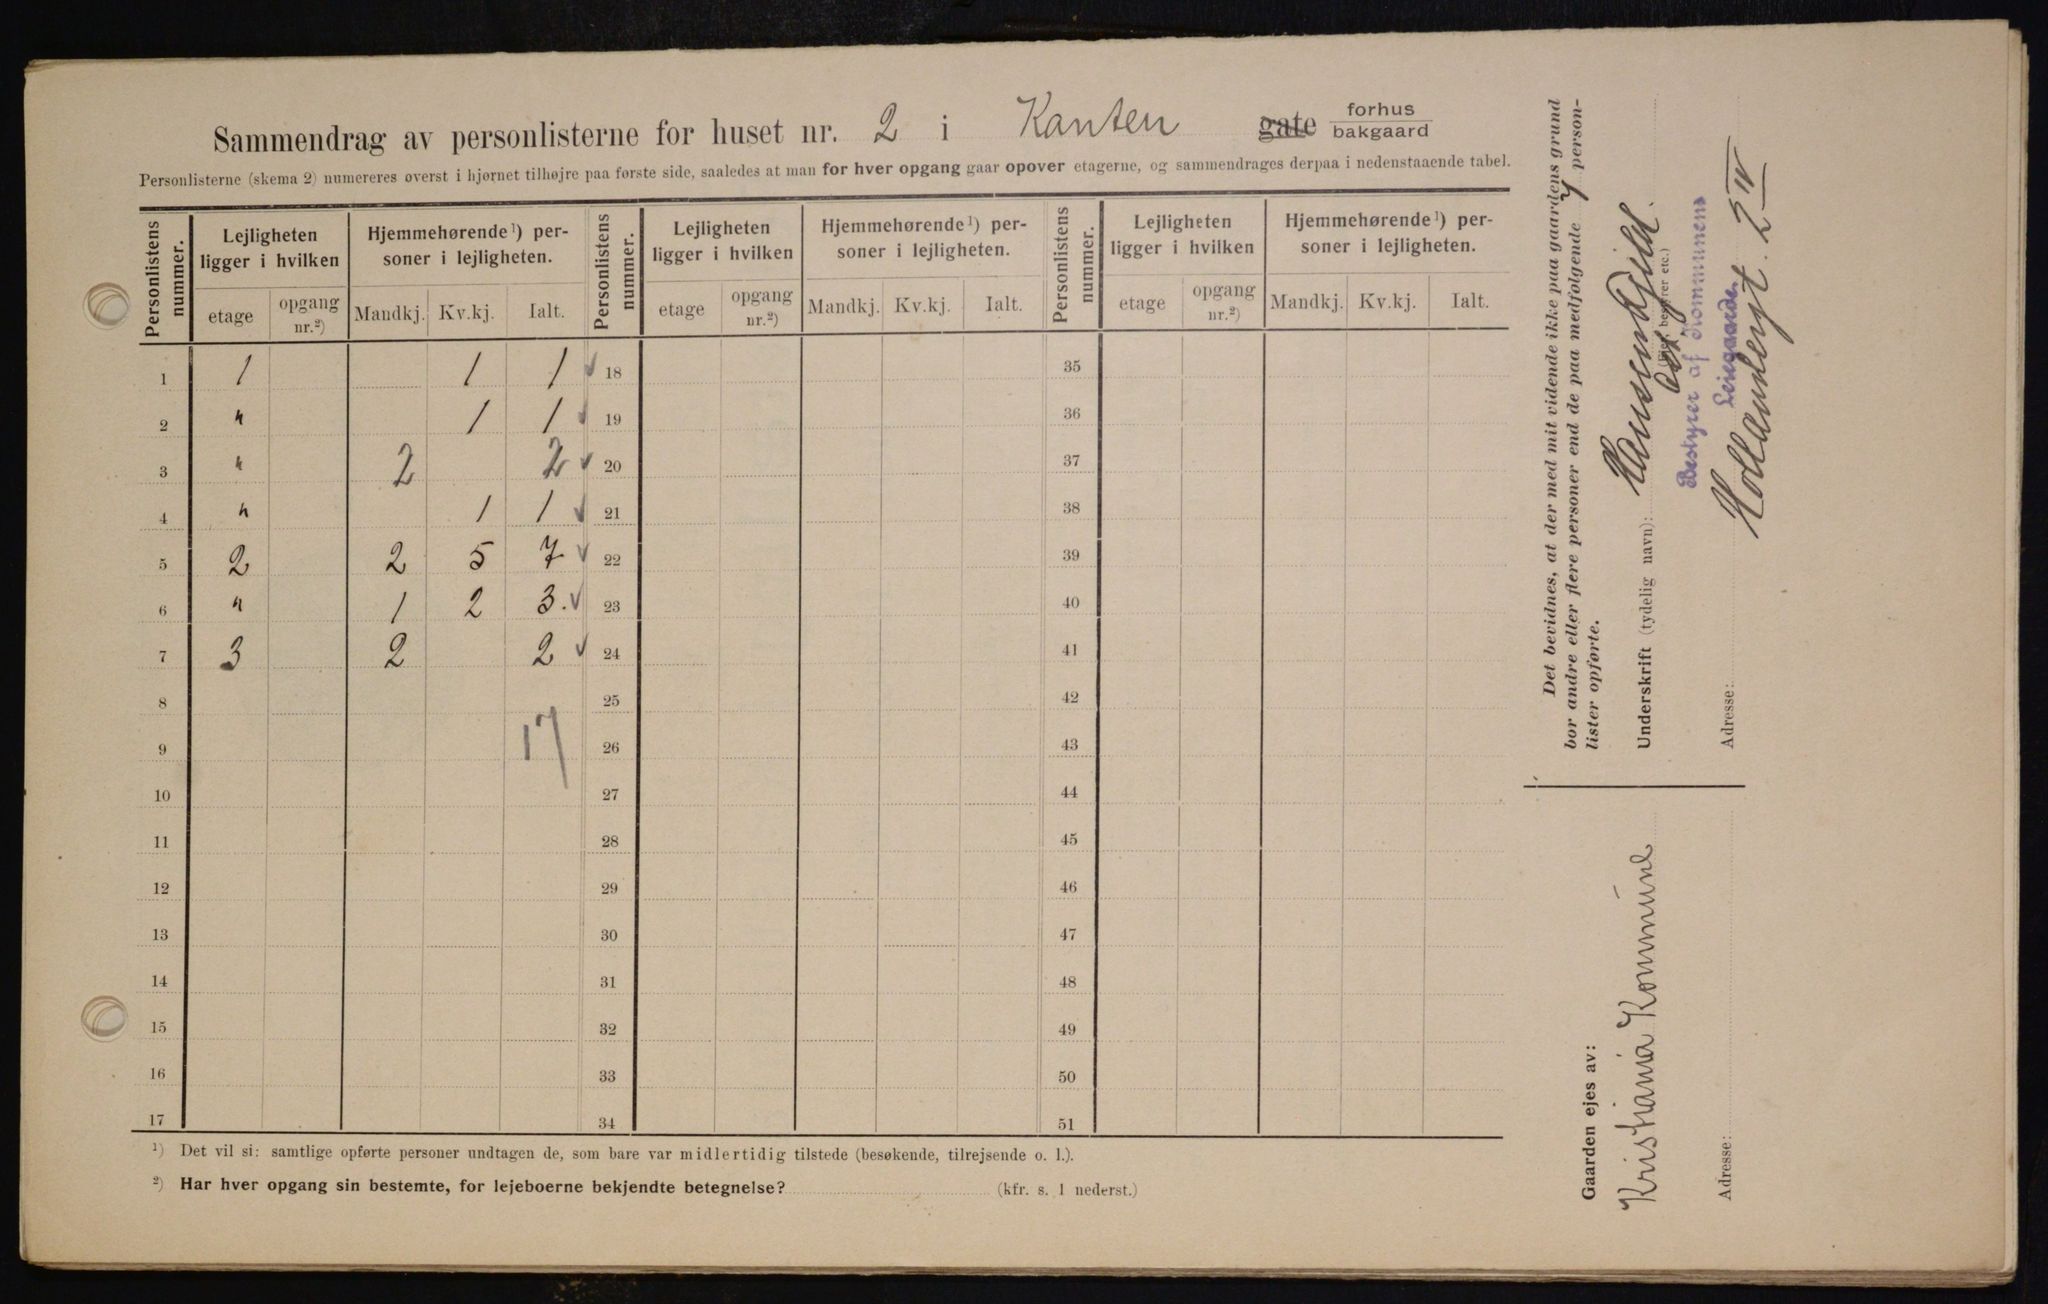 Sammendrag av personlisterne for huset nr. 2 i Kanten gate forhus bakgaard
Personlisterne (skema 2) numereres øverst i hjørnet tilhøjre paa første side, saaledes at man for hver opgang gaar opover etagerne, og sammendrages derpaa i nedenstaaende tabel.
Personlistens nummer. Lejligheten ligger i hvilken Hjemmehørende¹) personer i lejligheten. Personlistens nummer. Lejligheten ligger i hvilken Hjemmehørende¹) personer i lejligheten. Personlistens nummer. Lejligheten ligger i hvilken Hjemmehørende¹) personer i lejligheten.
etage opgang nr.²) Mandkj. Kv.kj. Ialt. etage opgang nr.²) Mandkj. Kv.kj. Ialt. etage opgang nr.²) Mandkj. Kv.kj. Ialt.
1 1 1 1 18 35
2 " 1 1 19 36
3 " 2 2 20 37
4 " 1 1 21 38
5 2 2 5 7 22 39
6 " 1 2 3. 23 40
7 3 2 2 24 41
8 25 42
9 17 26 43
10 27 44
11 28 45
12 29 46
13 30 47
14 31 48
15 32 49
16 33 50
17 34 51
¹) Det vil si: samtlige opførte personer undtagen de, som bare var midlertidig tilstede (besøkende, tilrejsende o. l.).
²) Har hver opgang sin bestemte, for lejeboerne bekjendte betegnelse? (kfr. s. 1 nederst.)
Det bevidnes, at der med mit vidende ikke paa gaardens grund
bor andre eller flere personer end de paa medfølgende 7 person-
lister opførte.
Underskrift (tydelig navn):
(Ejer, bestyrer etc.)
Bestyrer af Kommunens
Leiegaarde.
Adresse: Hollenbergt. 2 IV
Gaarden ejes av:
Kristiania Kommune
Adresse: